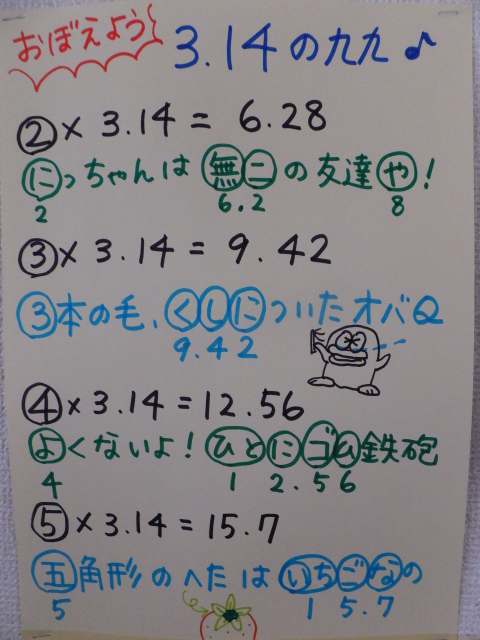 おぼえよう
3.14の九九♪
② × 3.14 = 6.28
にっちゃんは無二の友達や!
2 6.2 8
③ × 3.14 = 9.42
③本の毛、くしについたオバQ
9.42
④ × 3.14 = 12.56
よくないよ!ひとにゴム鉄砲
4 1 2.56
⑤ × 3.14 = 15.7
五角形のへたはいちごなの
5 1 5.7